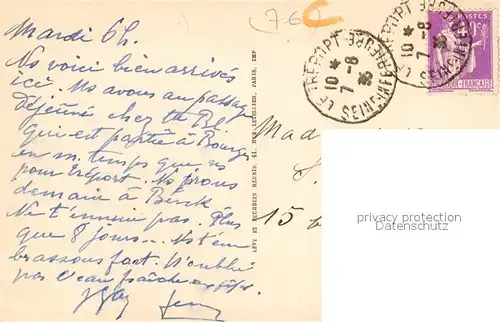 (76
Mardi 6h.
Ns voici bien arrivés
ici. Ns avons au passage
déjeuné chez
qui est partie à Bourges
en m. temps que ns
pour Tréport. Ns irons
demain à Berck
Ne t'ennuie pas. Plus
que 8 jours... Ns t'em
brassons fort. N'oublie
pas l'eau fraîche
LE TREPORT
10 *
7 -8
35
SEINE-INFRE
LE TREPORT
10 *
7 -8
35
SEINE-INFRE
POSTES
LÉVY ET NEURDEIN RÉUNIS, 44, RUE LETELLIER, PARIS, IMP.
Mad
15
privacy protection
Datenschutz